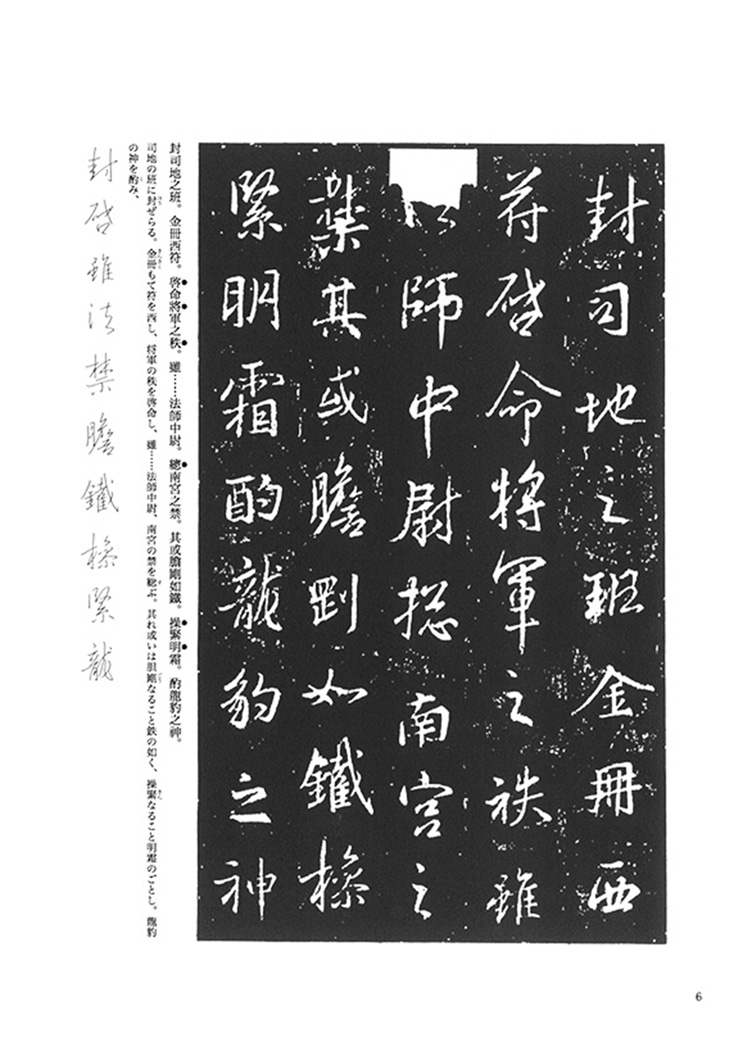 封司地之班金冊西
苻啓命將軍之秩雖
師中尉揔南宮之
禁其或膽剛如鐵操
緊明霜酌龍豹之神
封司地之班。金冊西符。啓命將軍之秩。雖……法師中尉。總南宮之禁。其或膽剛如鐵。操緊明霜。酌龍豹之神。
司地の班に封ぜらる。金冊もて符を西し、将軍の秩を啓命し、雖……法師中尉、南宮の禁を総ぶ。其れ或いは胆剛なること鉄の如く、操緊なること明霜のごとし。龍豹
の神を酌み、
封啓雖法禁膽鐵操緊龍
6